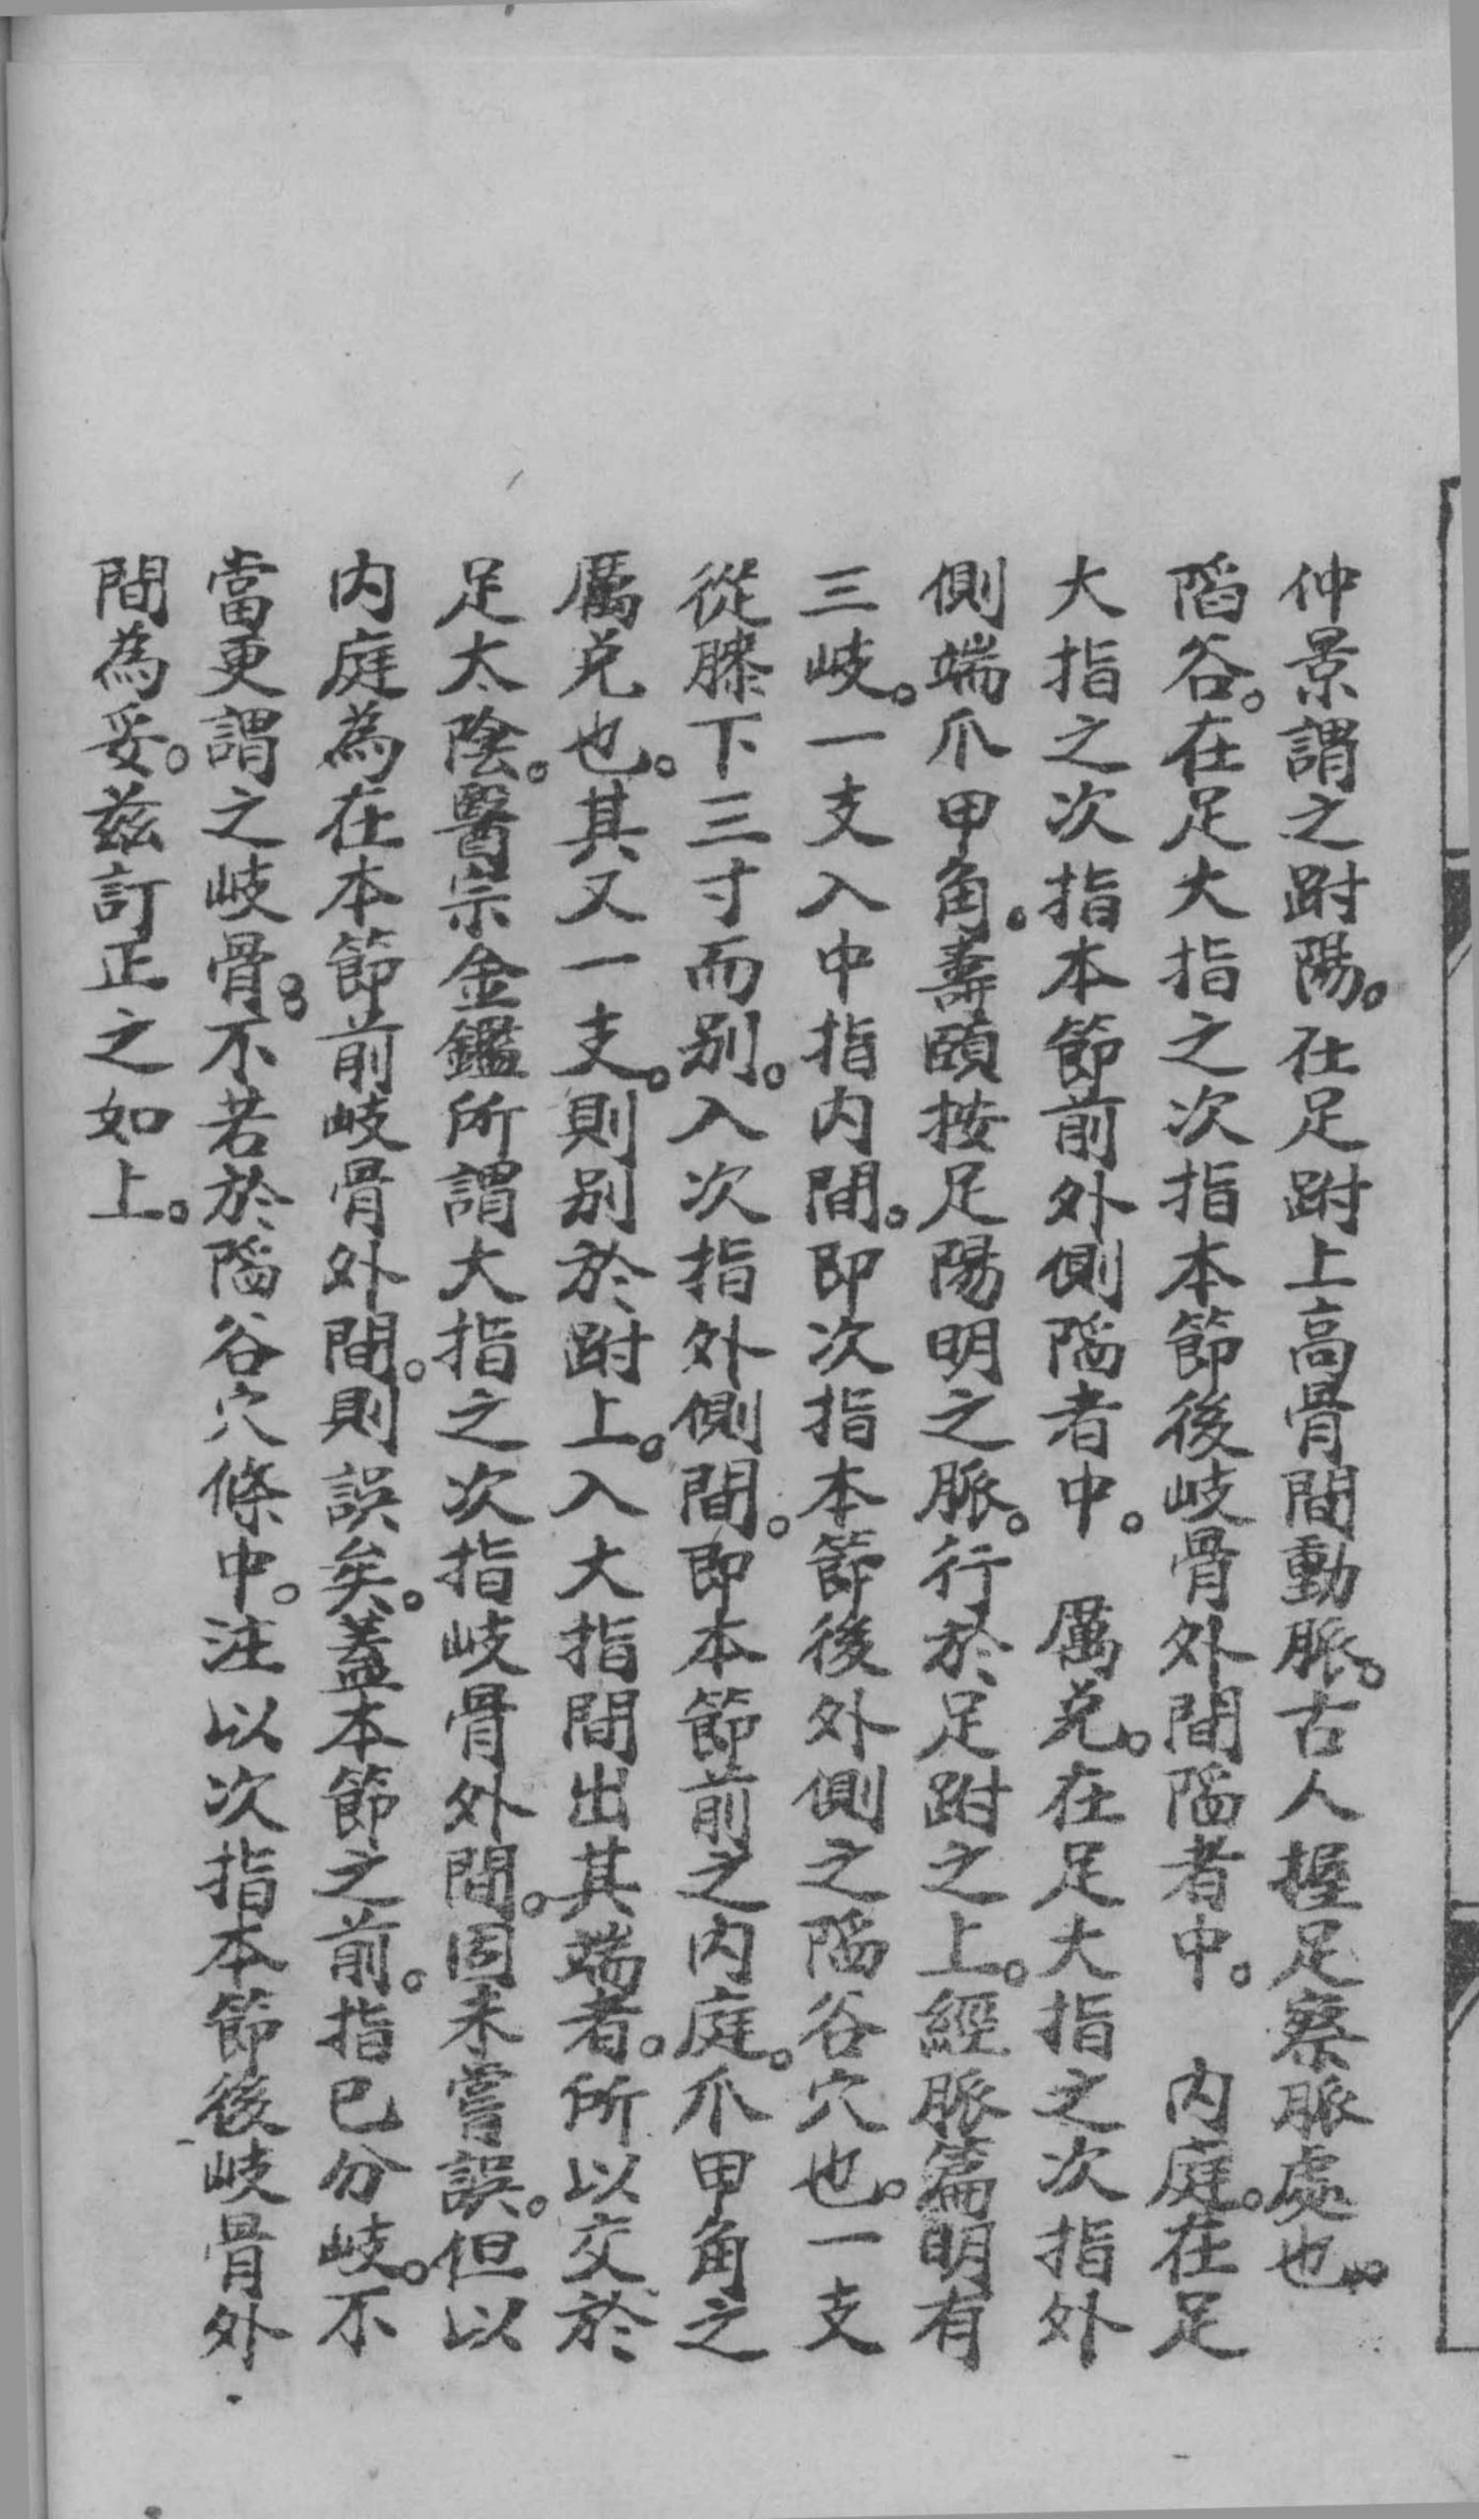 仲景謂之跗陽。在足跗上高骨間動脈。古人握足察脈處也。
陷谷。在足大指之次指本節後岐骨外間陷者中。　內庭。在足
大指之次指本節前外側陷者中。　厲兌。在足大指之次指外
側端爪甲角。壽頤按足陽明之脈。行於足跗之上。經脈篇明有
三岐。一支入中指內間。即次指本節後外側之陷谷穴也。一支
從膝下三寸而別。入次指外側間。即本節前之內庭。爪甲角之
厲兌也。其又一支。則別於跗上。入大指間出其端者。所以交於
足太陰。醫宗金鑑所謂大指之次指岐骨外間。固未嘗誤。但以
內庭為在本節前岐骨外間。則誤矣。蓋本節之前。指已分岐。不
當更謂之岐骨。不若於陷谷穴條中。注以次指本節後岐骨外
間為妥。茲訂正之如上。